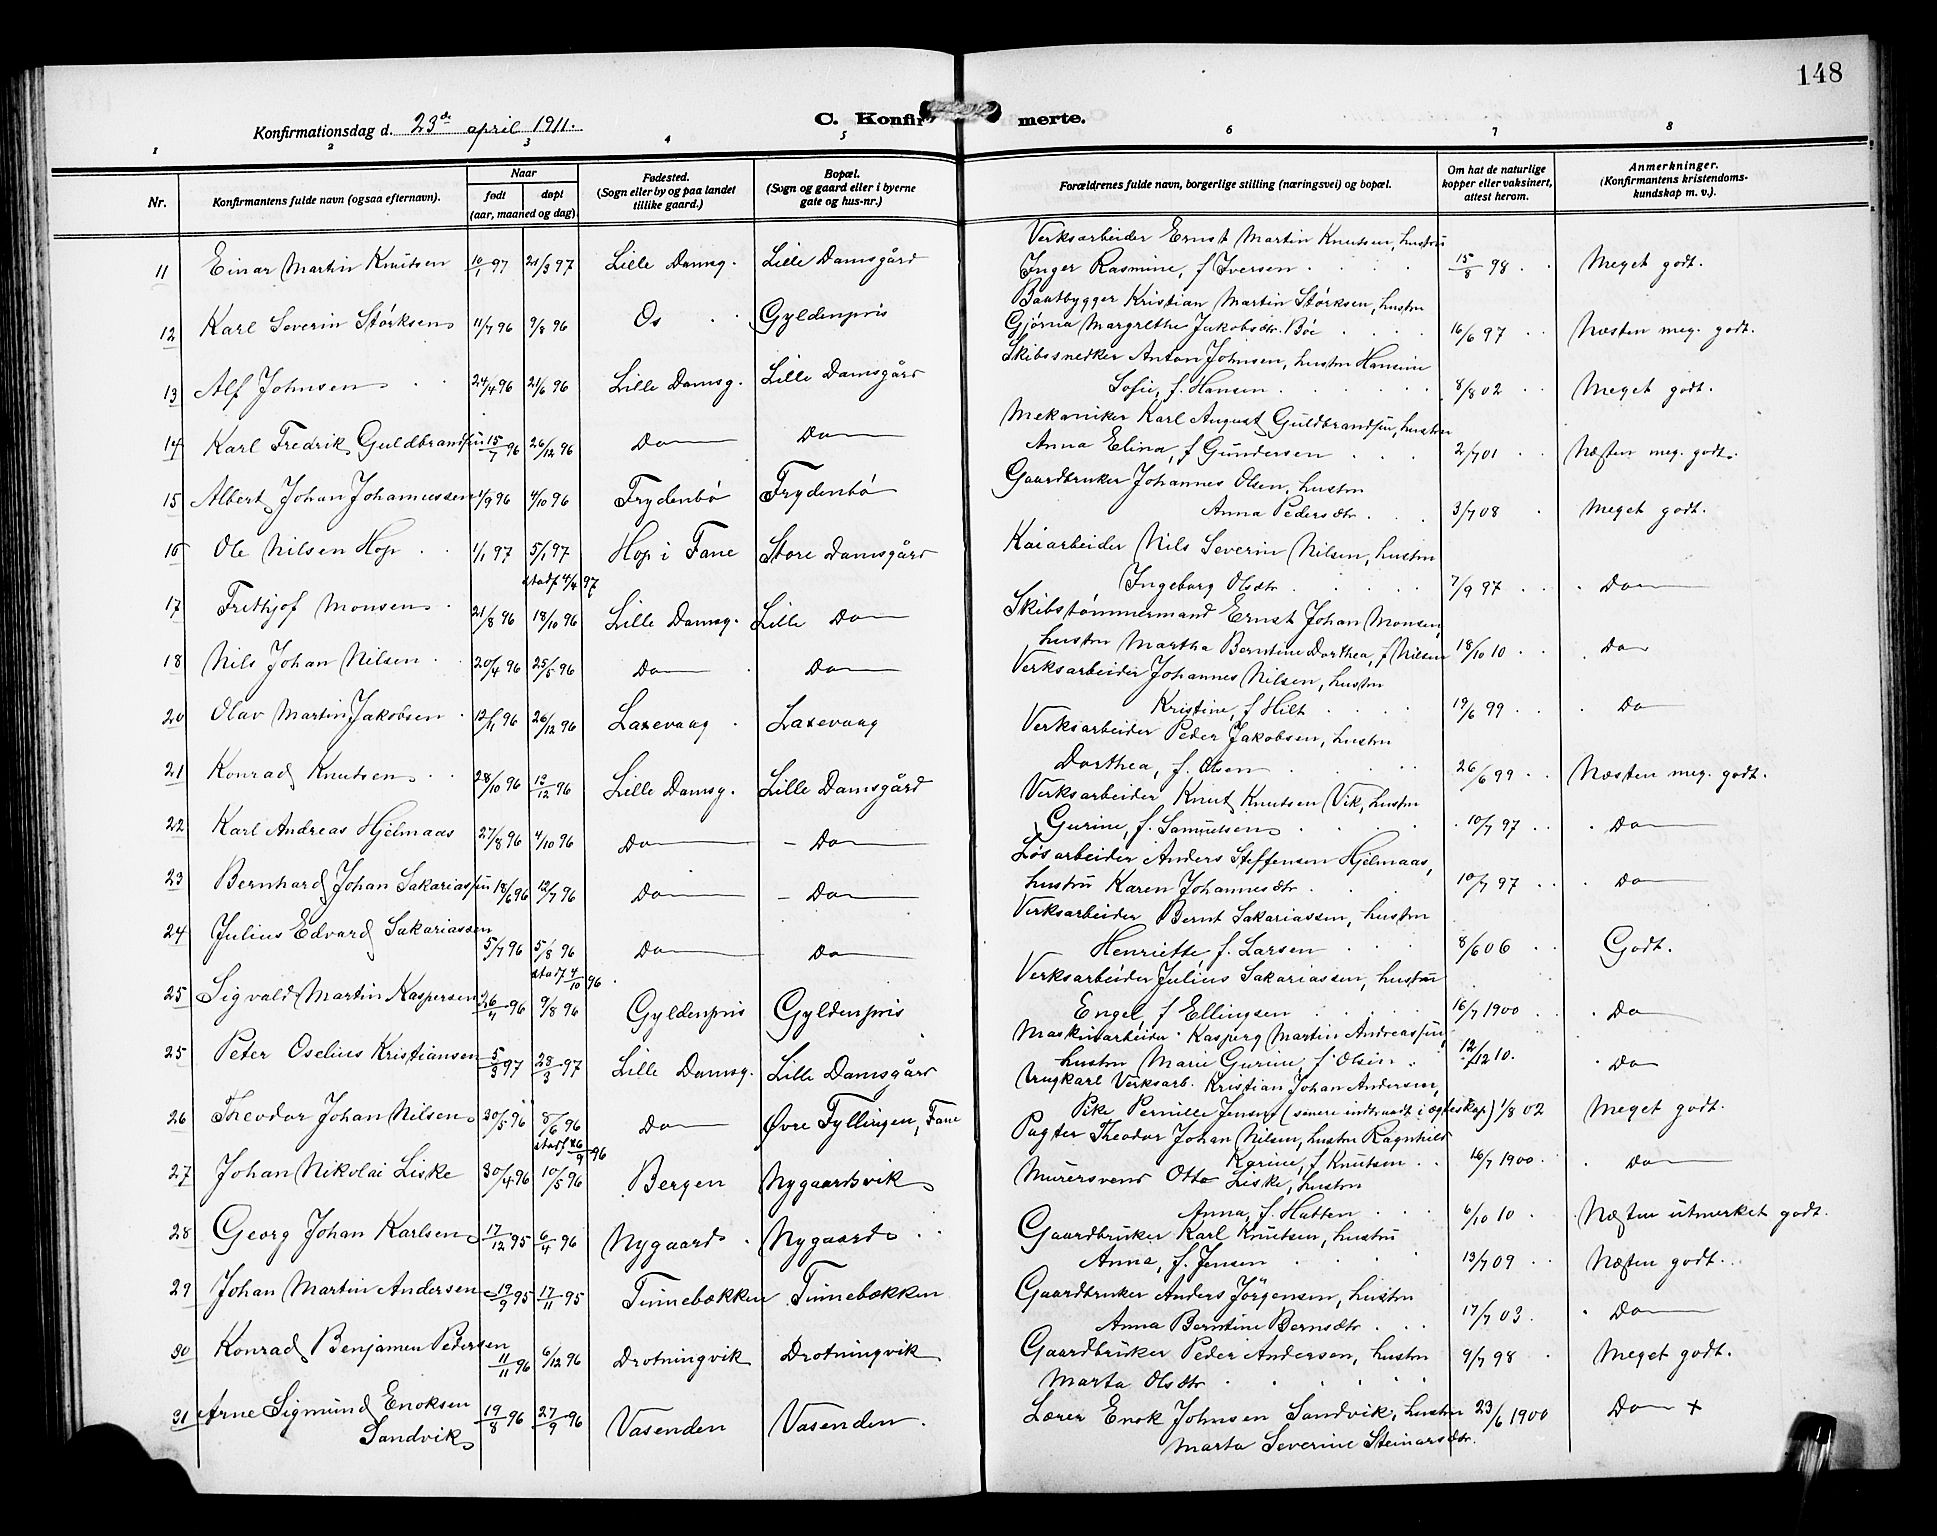 148
Konfirmationsdag d. 23de april 1911.
C. Konfirmerte.
1 2 3 4 5 6 7 8
Nr.
Konfirmantens fulde navn (ogsaa efternavn).
Naar
født døpt
(aar, maaned og dag)
Fødested.
(Sogn eller by og paa landet
tillike gaard.)
Bopæl.
(Sogn og gaard eller i byerne
gate og hus-nr.)
Forældrenes fulde navn, borgerlige stilling (næringsvei) og bopæl.
Om hat de naturlige
kopper eller vaksinert,
attest herom.
Anmerkninger.
(Konfirmantens kristendoms-
kundskap m. v.).
Verksarbeider Ernst Martin Knutsen, hustru
11 Einar Martin Knutsen 10/1 97 21/3 97 Lille Damsg. Lille Damsgård Inger Rasmine, f Iversen 15/8 98 Meget godt.
Baatbygger Kristian Martin Störksen, hustru
12 Karl Severin Störksen 11/7 96 9/8 96 Os Gyldenpris Gjörna Margrethe Jakobsdtr. Böe 16/6 97 Næsten meg. godt.
Skibssnedker Anton Johnsen, hustru Hansine
13 Alf Johnsen 24/4 96 21/6 96 Lille Damsg. Lille Damsgård Sofie, f. Hansen 8/8 02 Meget godt.
Mekaniker Karl August Guldbrandsen, hustru
14 Karl Fredrik Guldbrandsen 15/7 96 26/12 96 Do Do Anna Elina, f Gundersen 2/7 01 Næsten meg. godt.
Gaardbruker Johannes Olsen, hustru
15 Albert Johan Johannessen 1/9 96 4/10 96 Frydenbö Frydenbö Anna Pedersdtr. 3/7 08 Meget godt.
16 Ole Nilsen Hop 1/1 97 5/1 97 Hop i Fane Store Damsgård Kaiarbeider Nils Severin Nilsen, hustru
stadf 4/4 97 Ingeborg Olsdtr 7/9 97 Do
17 Frithjof Monsen 21/8 96 18/10 96 Lille Damsg. Lille Do Skibstömmermand Ernst Johan Monsen,
hustru Martha Berntine Dorthea, f Nilsen 18/10 10 Do
18 Nils Johan Nilsen 20/4 96 25/5 96 Do Do Verksarbeider Johannes Nilsen, hustru
Kristine, f Hilt 19/6 99 Do
20 Olav Martin Jakobsen 12/11 96 26/12 96 Laxevaag Laxevaag Verksarbeider Peder Jakobsen, hustru
Dorthea, f. Olsen 26/6 99 Næsten meg. godt.
21 Konrad Knutsen 28/10 96 12/12 96 Lille Damsg. Lille Damsgård Verksarbeider Knut Knutsen Vik, hustru
Gurine, f. Samuelsen 10/7 97 Do
22 Karl Andreas Hjelmaas 27/8 96 4/10 96 Do Do Lösarbeider Anders Steffensen Hjelmaas,
hustru Karen Johannesdtr 10/7 97 Do
23 Bernhard Johan Sakariassen 18/6 96 12/7 96 Do Do Verksarbeider Bernt Sakariassen, hustru
Henriette f. Larsen 8/6 06 Godt.
24 Julius Edvard Sakariassen 5/7 96 5/8 96 Do Do
stadf 4/10 96 Verksarbeider Julius Sakariassen, hustru
Engel, f Ellingsen 16/7 1900 Do
25 Sigvald Martin Kaspersen 26/4 96 9/8 96 Gyldenpris Gyldenpris Maskinarbeider Kasperg Martin Andreassen,
hustru Marie Gurine, f Olsen 12/12 10. Do
25 Peter Oselius Kristiansen 5/3 97 28/3 97 Lille Damsg. Lille Damsgård Ungkarl Verksarb. Kristian Johan Andersen,
Pike Pernille Jensen (senere indtraadt i ægteskap) 1/8 02 Meget godt.
26 Theodor Johan Nilsen 30/5 96 8/6 96 Do Övre Fyllingen, Fane Pagter Theodor Johan Nilsen, hustru Ragnhild
stadf 26/9 96 Karine, f Knutsen 16/7 1900. Do
27 Johan Nikolai Liske 30/4 96 10/5 96 Bergen Nygaardsvik Murersvend Otto Liske, hustru
Anna, f. Hatten 6/10 10 Næsten utmerket godt.
28 Georg Johan Karlsen 17/12 95 6/4 96 Nygaard Nygaard Gaardbruker Karl Knutsen, hustru
Anna, f. Jensen 13/7 09 Næsten godt.
29 Johan Martin Andersen 19/9 95 17/11 95 Tinnebækken Tinnebækken Gaardbruker Anders Jörgensen, hustru
Anna Berntine Bernsdtr 17/7 03. Do
30 Konrad Benjamen Pedersen 11/11 96 6/12 96 Drotningvik Drotningvik Gaardbruker Peder Andersen, hustru 9/7 98 Meget godt.
Marta Olsdtr
31 Arne Sigmund Enoksen 19/8 96 27/9 96 Vasenden Vasenden. Lærer Enok Johnsen Sandvik, hustru 23/6 1900 Do +
Sandvik Marta Severine Steinarsdtr.